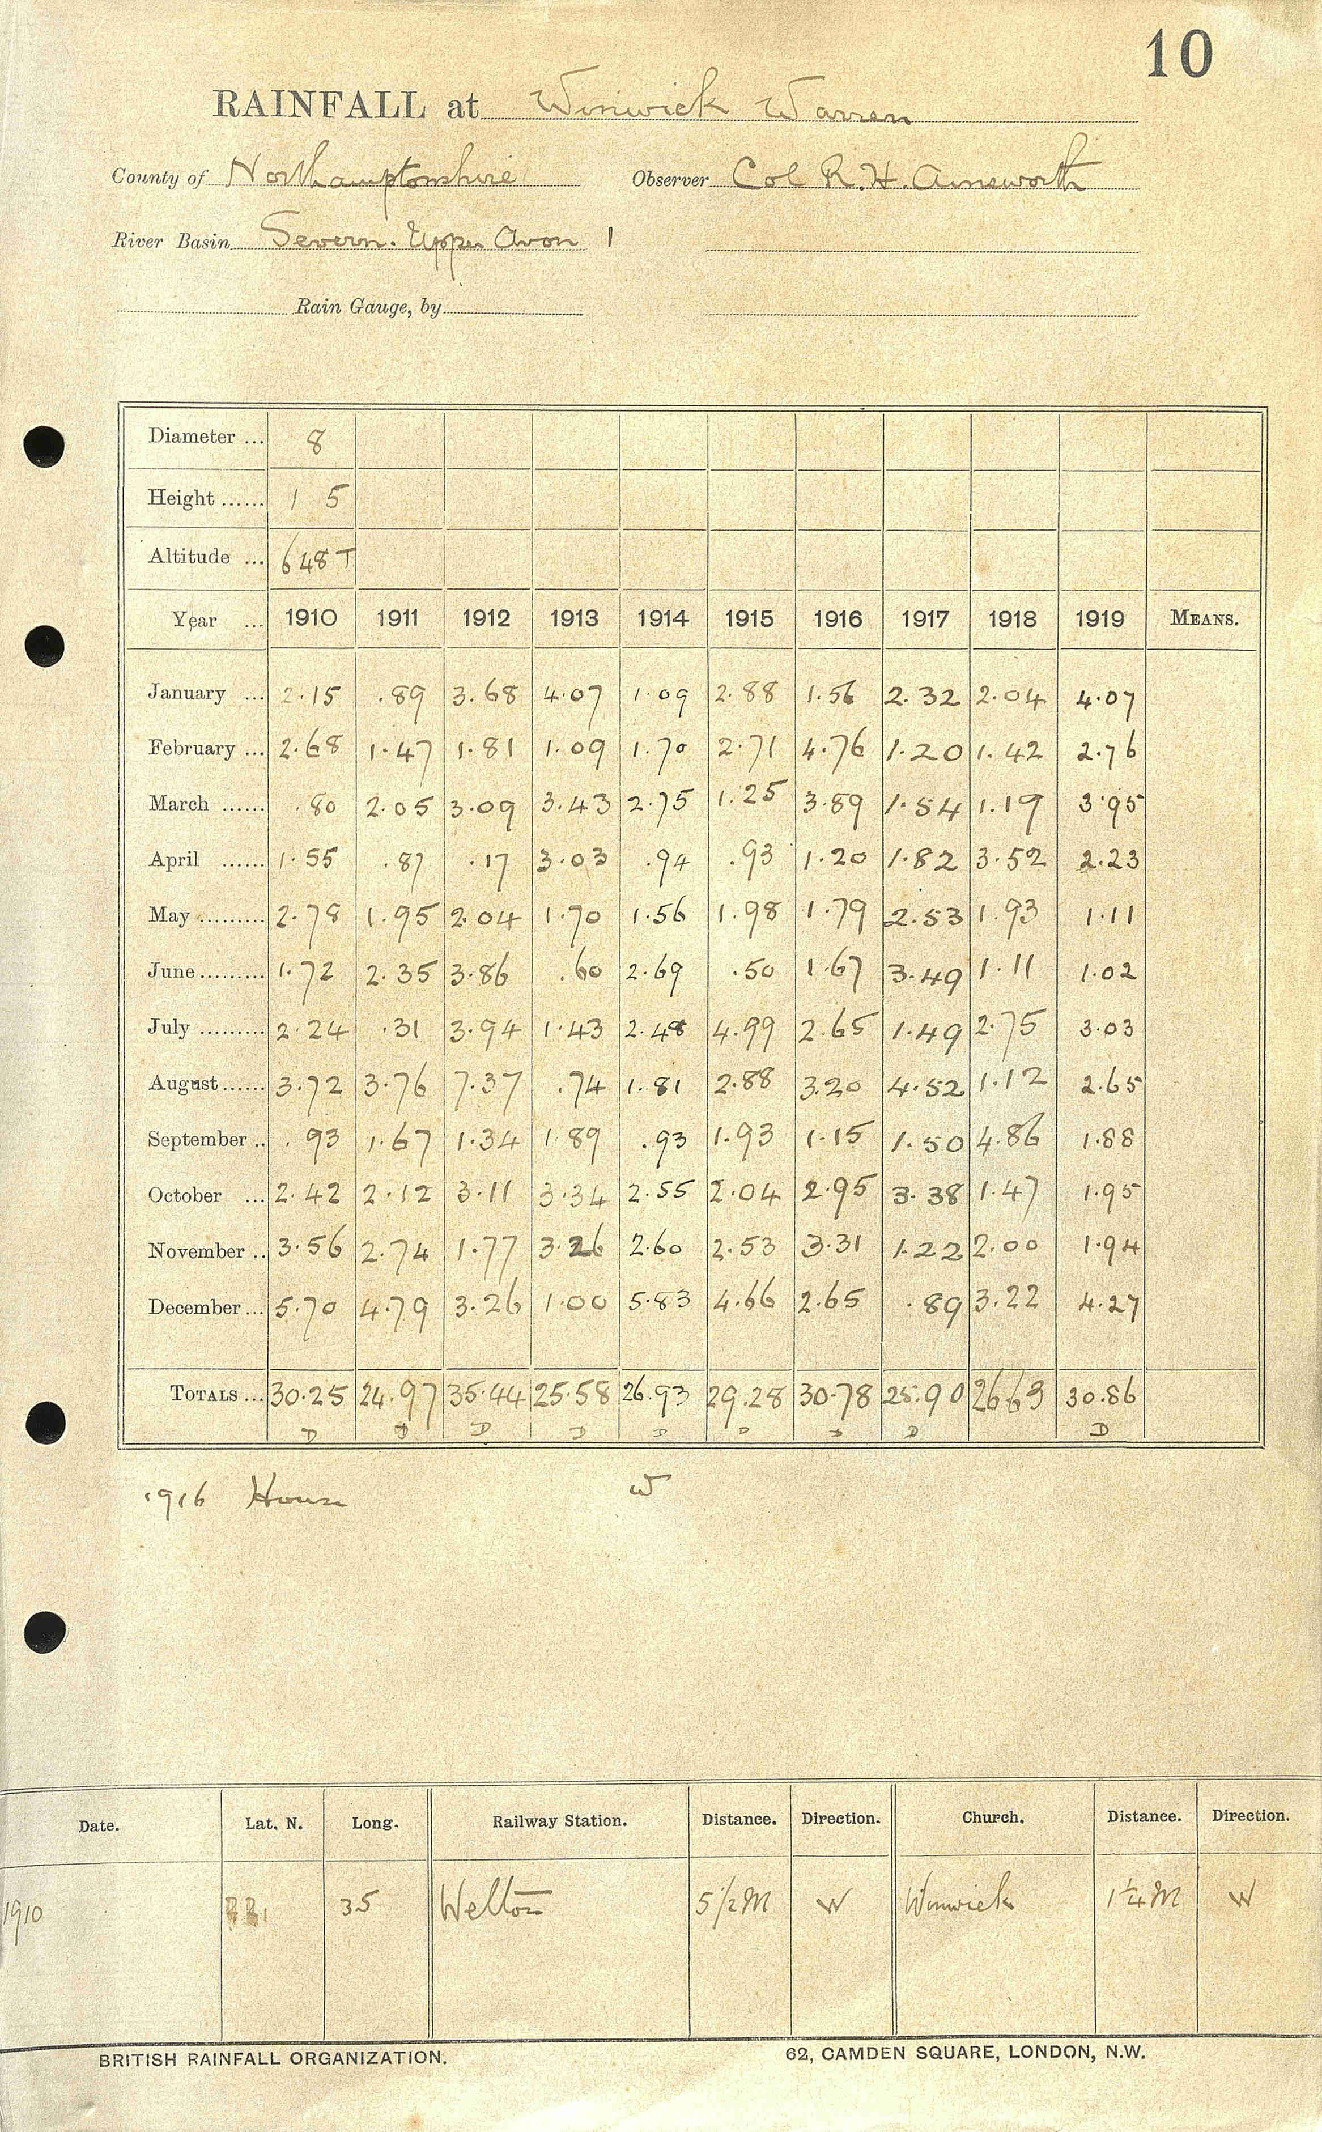 10
RAINFALL at Winwick Warren
County of Northamptonshire Observer Col R. H. Ainsworth
River Basin Severn. Upper Avon 1
Rain Gauge, by
Diameter ... 8
Height ...... 1 5
Altitude ... 648 T
Year ... 1910 1911 1912 1913 1914 1915 1916 1917 1918 1919 MEANS.
January ... 2.15 .89 3.68 4.07 1.09 2.88 1.56 2.32 2.04 4.07
February ... 2.68 1.47 1.81 1.09 1.70 2.71 4.76 1.20 1.42 2.76
March ...... .80 2.05 3.09 3.43 2.75 1.25 3.89 1.54 1.19 3.95
April ...... 1.55 .87 .17 3.03 .94 .93 1.20 1.82 3.52 2.23
May ......... 2.78 1.95 2.04 1.70 1.56 1.98 1.79 2.53 1.93 1.11
June ......... 1.72 2.35 3.86 .60 2.69 .50 1.67 3.49 1.11 1.02
July ......... 2.24 .31 3.94 1.43 2.48 4.99 2.65 1.49 2.75 3.03
August ...... 3.72 3.76 7.37 .74 1.81 2.88 3.20 4.52 1.12 2.65
September .. .93 1.67 1.34 1.89 .93 1.93 1.15 1.50 4.86 1.88
October ... 2.42 2.12 3.11 3.34 2.55 2.04 2.95 3.38 1.47 1.95
November .. 3.56 2.74 1.77 3.26 2.60 2.53 3.31 1.22 2.00 1.94
December ... 5.70 4.79 3.26 1.00 5.83 4.66 2.65 .89 3.22 4.27
TOTALS ... 30.25 24.97 35.44 25.58 26.93 29.28 30.78 25.90 26.63 30.86
D D D D D D D D D
1916 House W
Date. Lat. N. Long. Railway Station. Distance. Direction. Church. Distance. Direction.
1910 35 Welton 5 1/2 M W Winwick 1 1/4 M W
BRITISH RAINFALL ORGANIZATION. 62, CAMDEN SQUARE, LONDON, N.W.